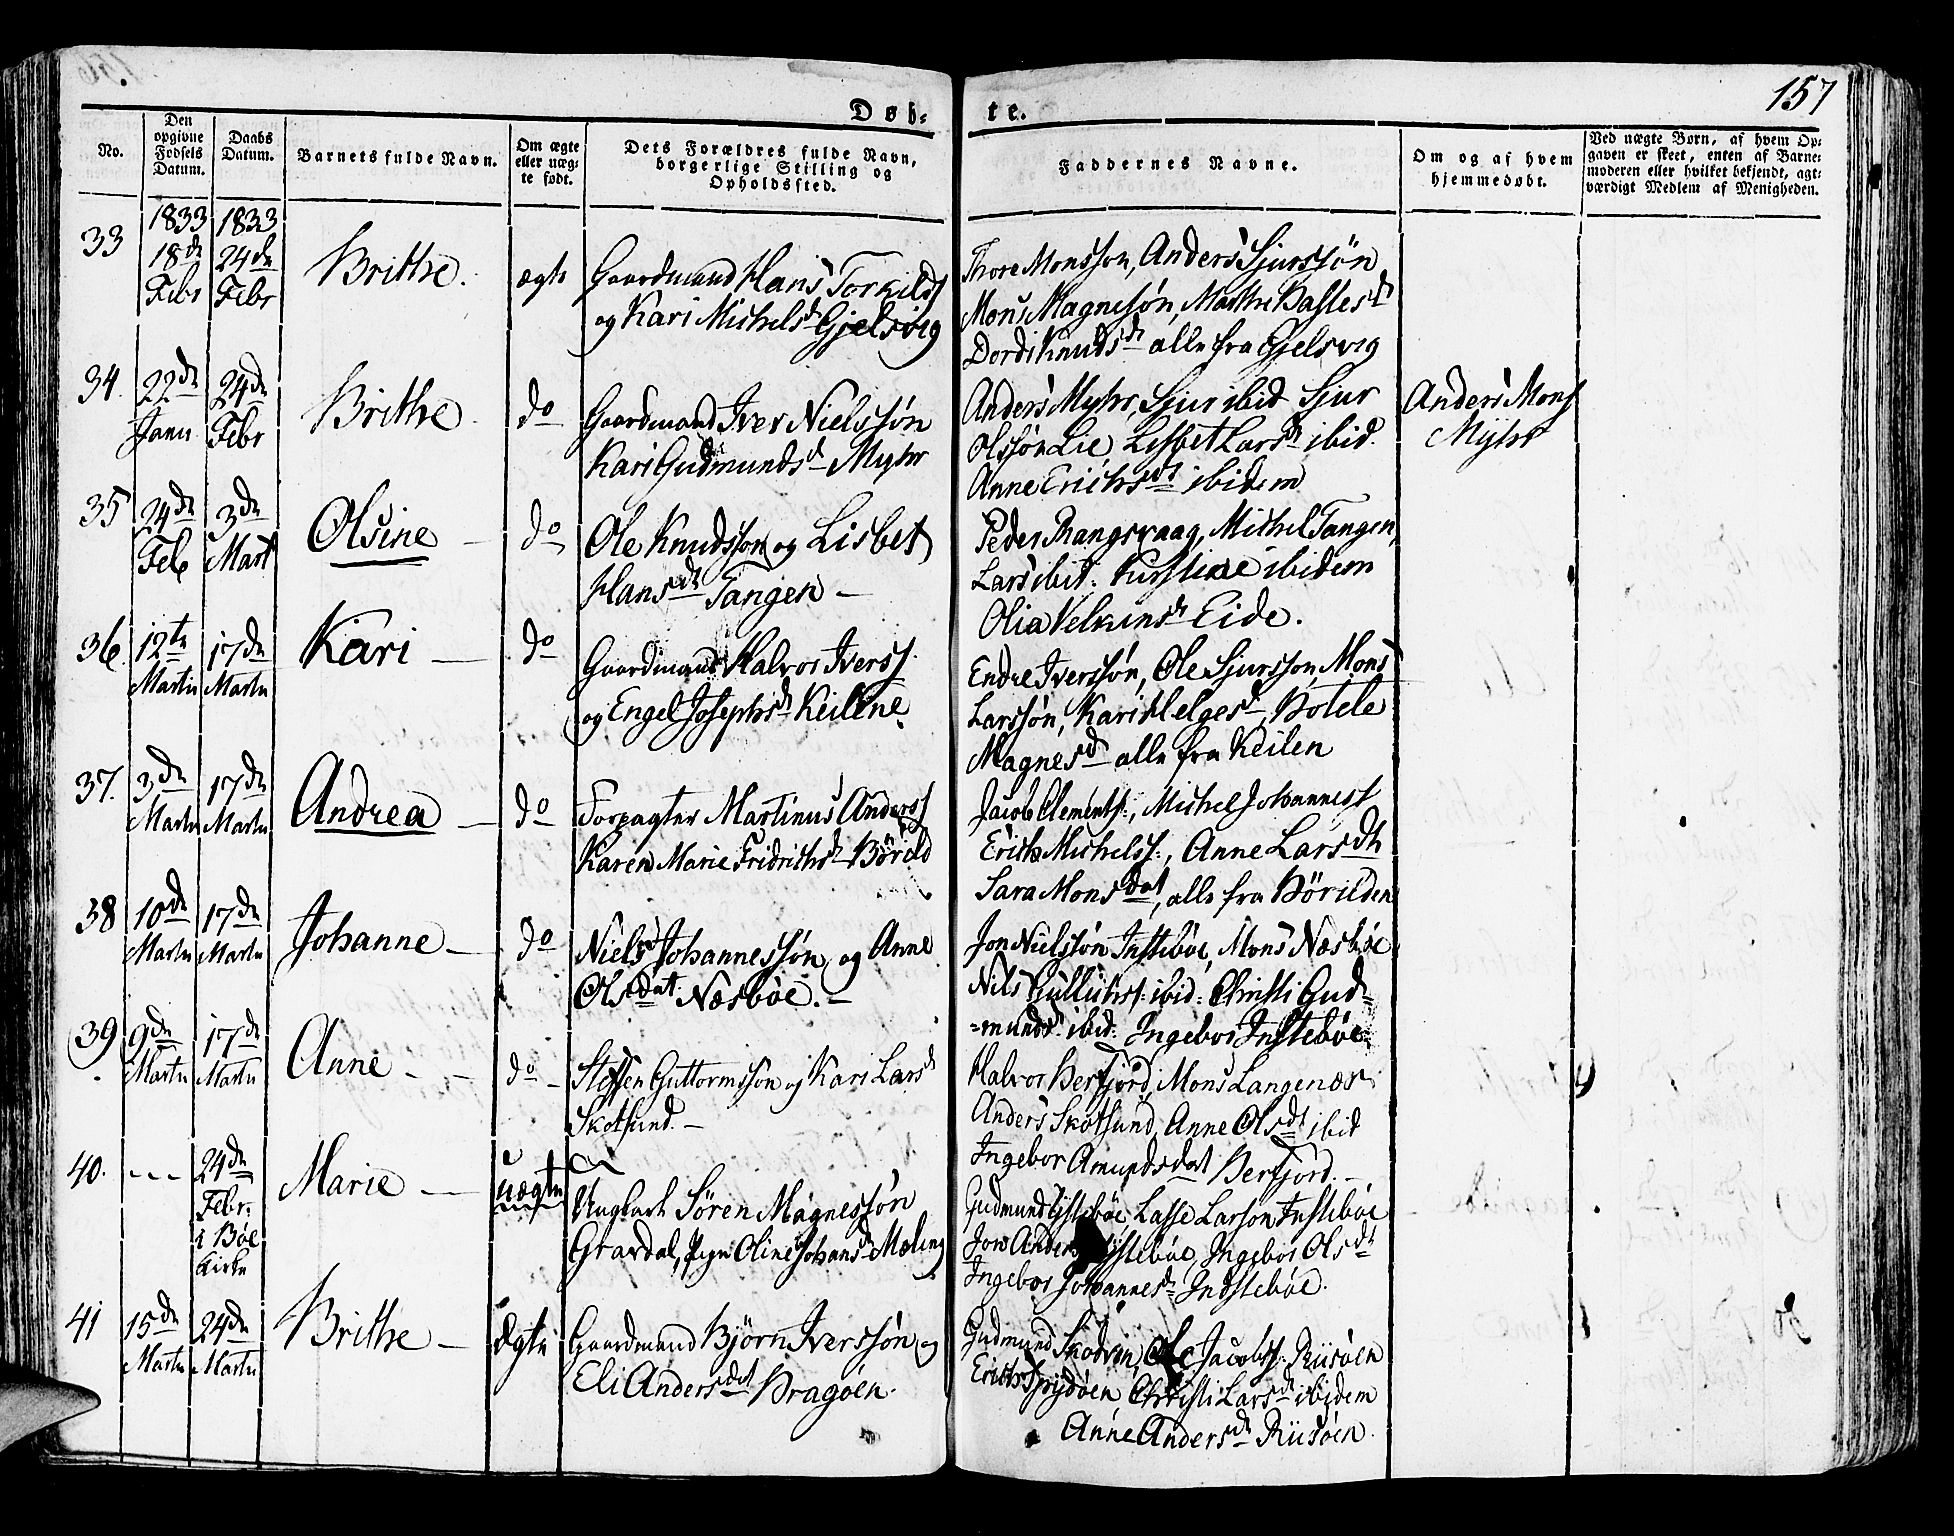 157
Døb-
te.
No.
Den
opgivne
Fødsels
Datum.
Daabs
Datum.
Barnets fulde Navn.
Om ægte
eller uæg-
te født.
Dets Forældres fulde Navn,
borgerlige Stilling og
Opholdssted.
Faddernes Navne.
Om og af hvem
hjemmedøbt.
Ved uægte Børn, af hvem Op-
gaven er skeet, enten af Barne-
moderen eller hvilket bekjendt, agt-
værdigt Medlem af Menigheden.
33
1833
18de
Febr
1833
24de
Febr
Brithe.
ægte
Gaardmand Hans Torkilds
og Kari Michelsd Gjelsvig
Thore Monsson, Anders Sjurssøn
Mons Magnesøn, Marthe
Dordi Knudsd alle fra Gjelsvig
34.
22de
Janu
24de
Febr
Brithe
do
Gaardmand Iver Nielssøn
Kari Gudmundsd Myhr
Anders Myhr, Sjur ibid Sjur
Olssøn Lie, Lisbet Larsd ibid.
Anne Erichsdt ibidem
Anders Mons
Myhr
35
24de
Feb
3de
Mart
Olsine
do
Ole Knudsson og Lisbet
Hansdt Tangen
Peder Michel Tangen
Lars ibid: ibidem
Olia Eide.
36
12te
Martii
17de
Martii
Kari
do
Gaardmand Halvor Iverss.
og Engel Josephsd Keilene
Endre Iverssøn, Ole Sjursson, Mons
Larssøn, Kari Helgesd, Botele
Magnesd alle fra Keilen
37.
3de
Martii
17de
Martii
Andrea
do
Forpagter Martinus Anderss
Karen Marie Fridrichsd Børild
Jacob Clements:, Michel Johanness
Erich Michelss:, Anne Larsdt
Sara Monsdat, alle fra Børilden
38
10de
Martii
17de
Martii
Johanne
do
Niels Johannessøn og Anne
Olsdat Næsbøe.
Jon Nielsøn Instebøe, Mons Næsbøe
Nils ibid: Christi Gud-
-mundsd ibid: Ingebor Instebøe
39
9de
Martii
17de
Martii
Anne
do
Steffen Guttormssøn og Kari Larsd
Skotsund.
Halvor Berfjord, Mons Langenæs
Anders Skotsund, Anne Olsdt ibid
Ingebor Amundsdat Berfjord.
40.
24de
Febr:
i Bøe
Kirke
Marie
uægte
Ungkarl Søren Magnessøn
Gravdal, Pige Oline Johansd Mæling
Gudmund Lasse Larson Instebøe
Jon Anders Ingebor Olsdt
Ingebor Johannesd Indstebøe.
41
15de
Martii
24de
Martii
Brithe
Ægte
Gaardmand Bjørn Iverssøn og
Eli Andersdat Kragøen.
Gudmund Skodvin, Ole Jacobss: Riisøen
Erich Christi Larsd ibidem
Anne Andersd Riisøen.